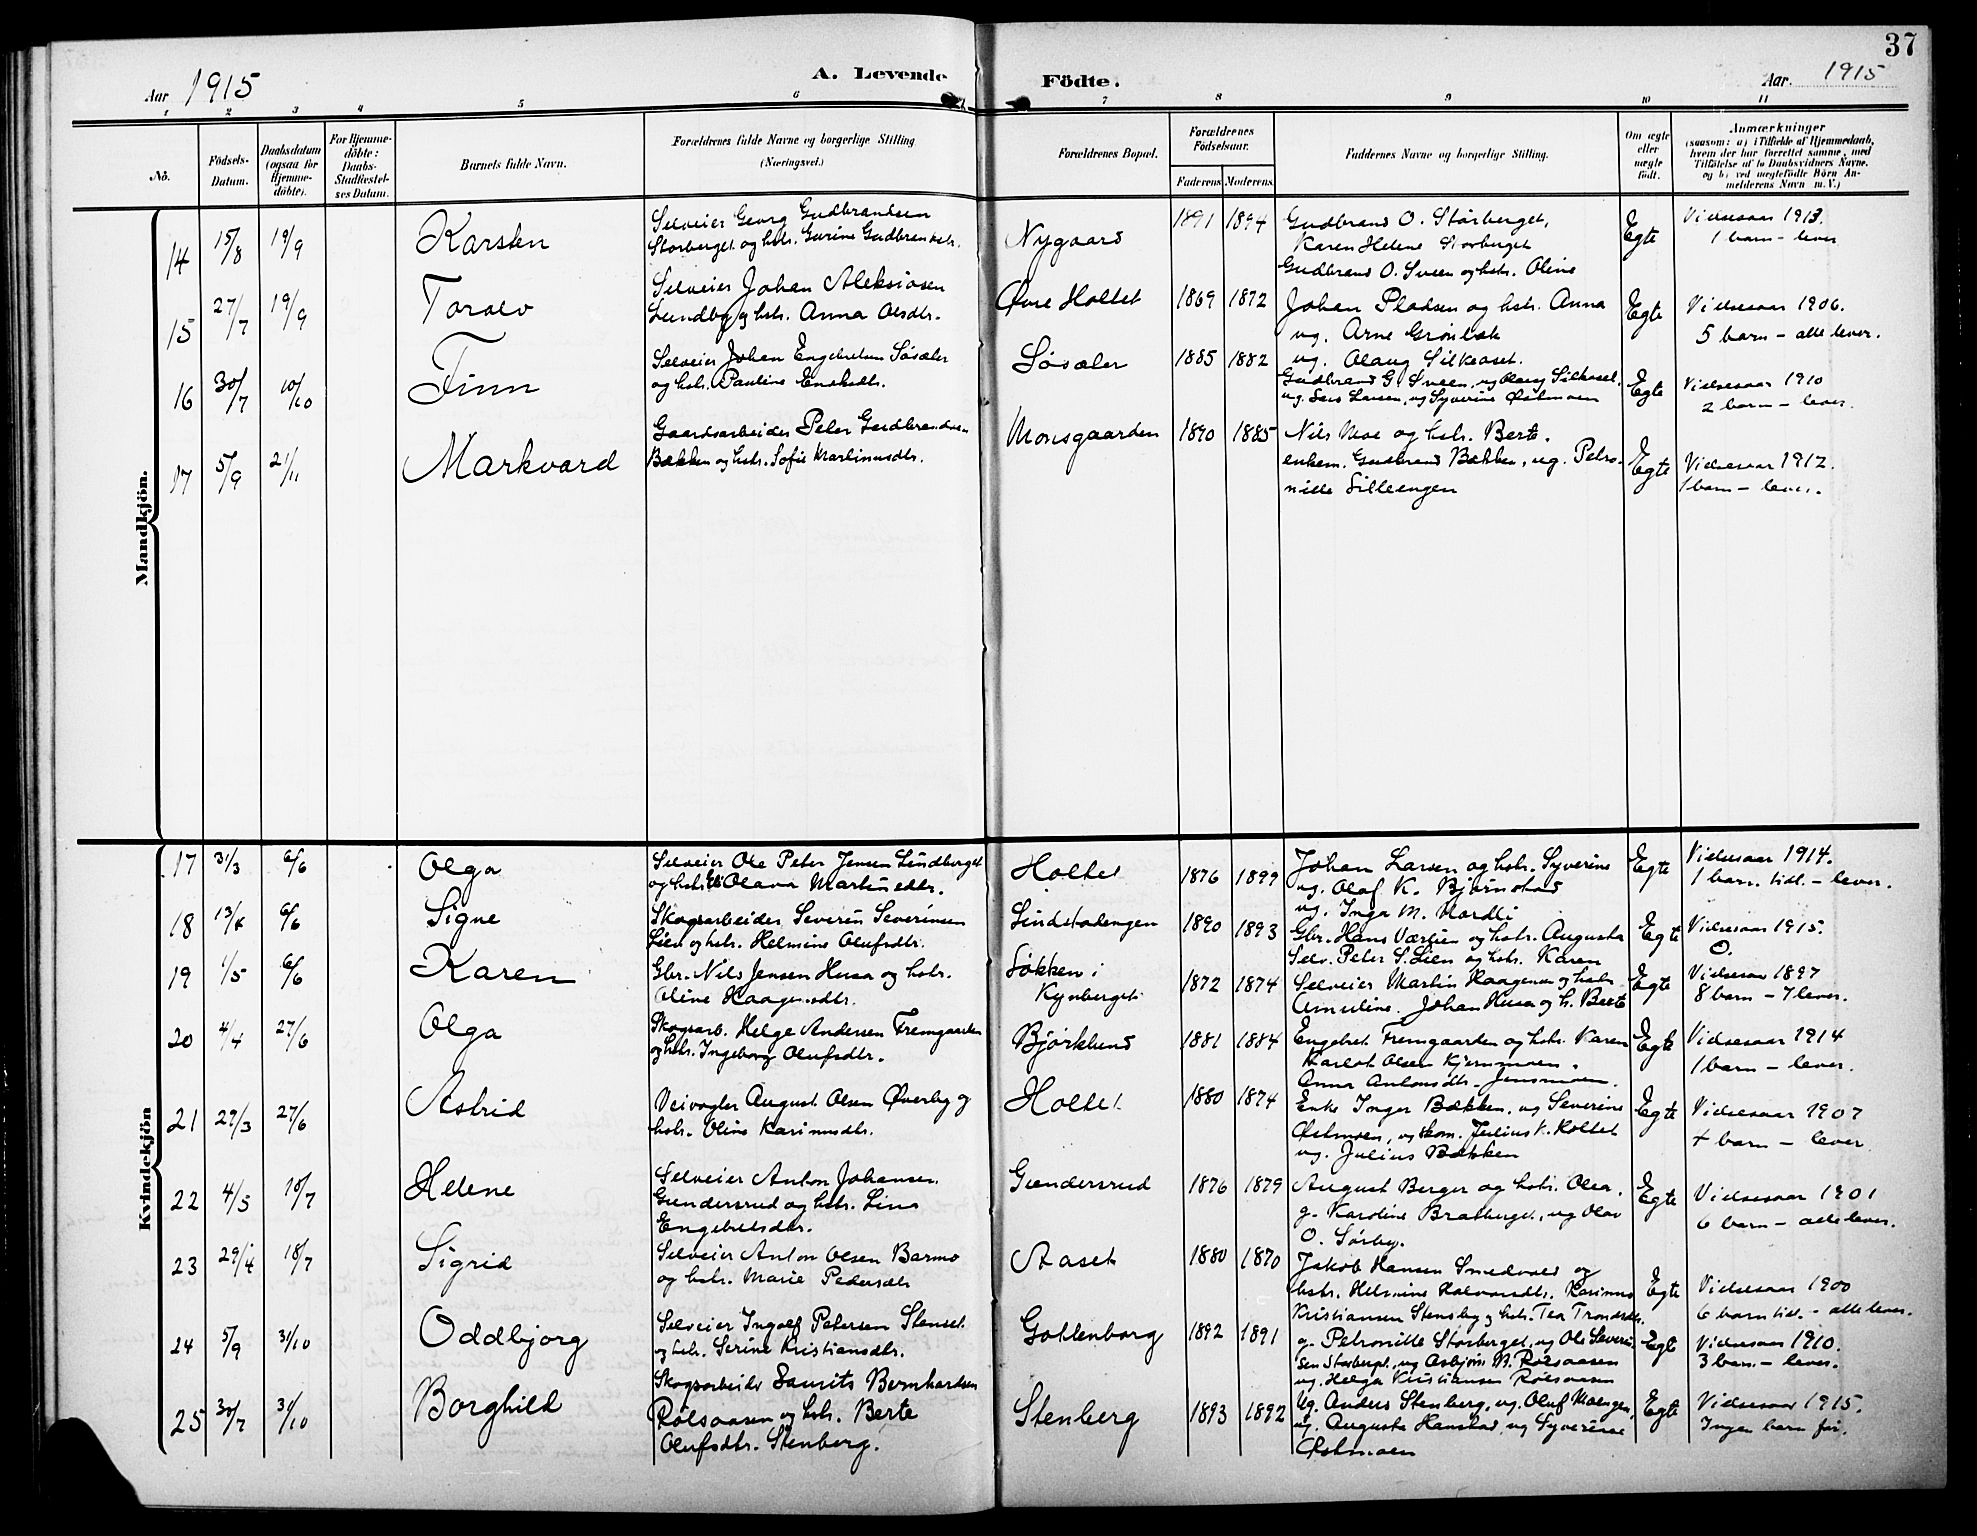 37
Aar 1915
A. Levende Födte.
Aar. 1915
1 2 3 4 5 6 7 8 9 10 11
No.
Födsels-Datum.
Daabsdatum (ogsaa for Hjemme-döbte).
For Hjemme-döbte: Daabs-Stadfæstel-ses Datum.
Barnets fulde Navn.
Forældrenes fulde Navne og borgerlige Stilling (Næringsvei.)
Forældrenes Bopæl.
Forældrenes Födselsaar.
Faderens Moderens
Faddernes Navne og borgerlige Stilling.
Om ægte eller uægte födt.
Anmærkninger
(saasom: a) i Tilfælde af Hjemmedaab,
hvem der har forrettet samme, med
Tilföielse af to Daabsvidners Navne.
og b) ved uægtefödte Börn An-
melderens Navn m. V.)
Mandkjön.
14 15/8 19/9 Karsten
Selveier Georg Gudbrandsen
Storberget og hstr. Gurine Gudbrandsdtr.
Nygaard 1891 1894
Gudbrand O. Storberget,
Karen Helene Storberget
Gudbrand O. Sveen og hstr. Oline
Egte
Vielsesaar 1913.
1 barn - lever
15 27/7 19/9 Toralv
Selveier Johan Aleksiasen
Lundby og hstr. Anna Olsdtr.
Øvre Holtet 1869 1872
Johan Pladsen og hstr. Anna
ug. Arne Grønbæk
ug. Olaug Silkoset.
Egte
Vielsesaar 1906.
5 barn - alle lever.
16 30/7 10/10 Finn
Selveier Johan Engebretsen Løsæter
og hstr. Pauline Enoksdtr.
Løsæter 1885 1882
Gudbrand G. Sveen, ug Olaug Silkoset.
ug. Lars Larsen, ug Syverine Østmoen
Egte
Vielsesaar 1910
2 barn - lever.
17 5/9 21/11 Markvard
Gaardsarbeider Peter Gudbrandsen
Bækken og hstr. Sofie Martinusdtr.
Monsgaarden 1890 1885
Nils Moe og hstr. Berte.
enkem. Gudbrand Bækken, ug. Petro-
nille Lilleengen
Egte
Vielsesaar 1912.
1 barn - lever.
Kvindekjön
17 31/3 6/6 Olga
Selveier Ole Peter Jensen Lindberget
og hstr. Olava Martinsdtr.
Holtet 1876 1899
Johan Larsen og hstr. Syverine
ug. Olaf K. Bjørnstad
ug. Inga M. Nordli
Egte
Vielsesaar 1914.
1 barn. tidl. - lever.
18 13/4 6/6 Signe
Skogsarbeider Severin Severinsen
Lien og hstr. Helmine Olufsdtr.
Lindstadengen 1890 1893
Gbr. Hans Værlien og hstr. Augusta
Selv. Peter S. Lien og hstr. Karen
Egte
Vielsesaar 1915.
0.
19 1/5 6/6 Karen
Gbr. Nils Jensen Husa og hstr.
Oline Haagensdtr.
Løkken i
Kynberget 1872 1874
Selveier Martin Haagensen og hstr.
Amuline. Johan Husa og h. Berte
Egte
Vielsesaar 1897
8 barn - 7 lever.
20 4/4 27/6 Olga
Skogsarb. Helge Andersen Fremgaarden
og hstr. Ingeborg Olufsdtr.
Bjørklund 1881 1884
Engebret Fremgaarden og hstr. Karen
Karlot Olsen Kjernmoen.
Anna Antonsdtr. Jensmoen.
Egte
Vielsesaar 1914
1 barn - lever.
21 29/3 27/6 Astrid
Veivogter August Olsen Øverby og
hstr. Oline Karinusdtr.
Holtet 1880 1874
Enke Inger Bækken, ug Severine
Østmoen, ug skom. Julius K. Holtet
ug. Julius Bækken
Egte
Vielsesaar 1907
4 barn - lever
22 4/5 18/7 Helene
Selveier Anton Johansen
Gundersrud og hstr. Lina
Engebretsdtr.
Gundersrud 1876 1879
August Berger og hstr. Olea.
g. Karoline Braberget, ug Olav
O. Sørby.
Egte
Vielsesaar 1901
6 barn - alle lever.
23 29/4 18/7 Sigrid
Selveier Anton Olsen Barmo
og hstr. Marie Pedersdtr
Aaset 1880 1870
Jakob Hansen Smedvold og
hstr. Helmine Halvorsdtr. Karinus
Kristiansen Stensby og hstr. Tea Trondsdtr.
Egte
Vielsesaar 1900
6 barn tidl. - alle lever.
24 5/9 31/10 Oddbjørg
Selveier Ingolf Petersen Stenset
og hstr. Serine Kristiansdtr.
Gottenborg 1892 1891
g. Petronille Storberget, ug Ole Severin-
sen Storberget, ug Asbjørn N. Rolsaasen
ug. Helga Kristiansen Rolsaasen
Egte
Vielsesaar 1910.
3 barn - lever.
25 30/7 31/10 Borghild
Skogsarbeider Laurits Bernhardsen
Rolsaasen og hstr. Berte
Olufsdtr. Stenberg.
Stenberg 1893 1892
Ug. Anders Stenberg, ug. Oluf Moengen,
ug. Augusta Hanstad, ug Syverine
Østmoen
Egte
Vielsesaar 1915.
Ingen barn før.